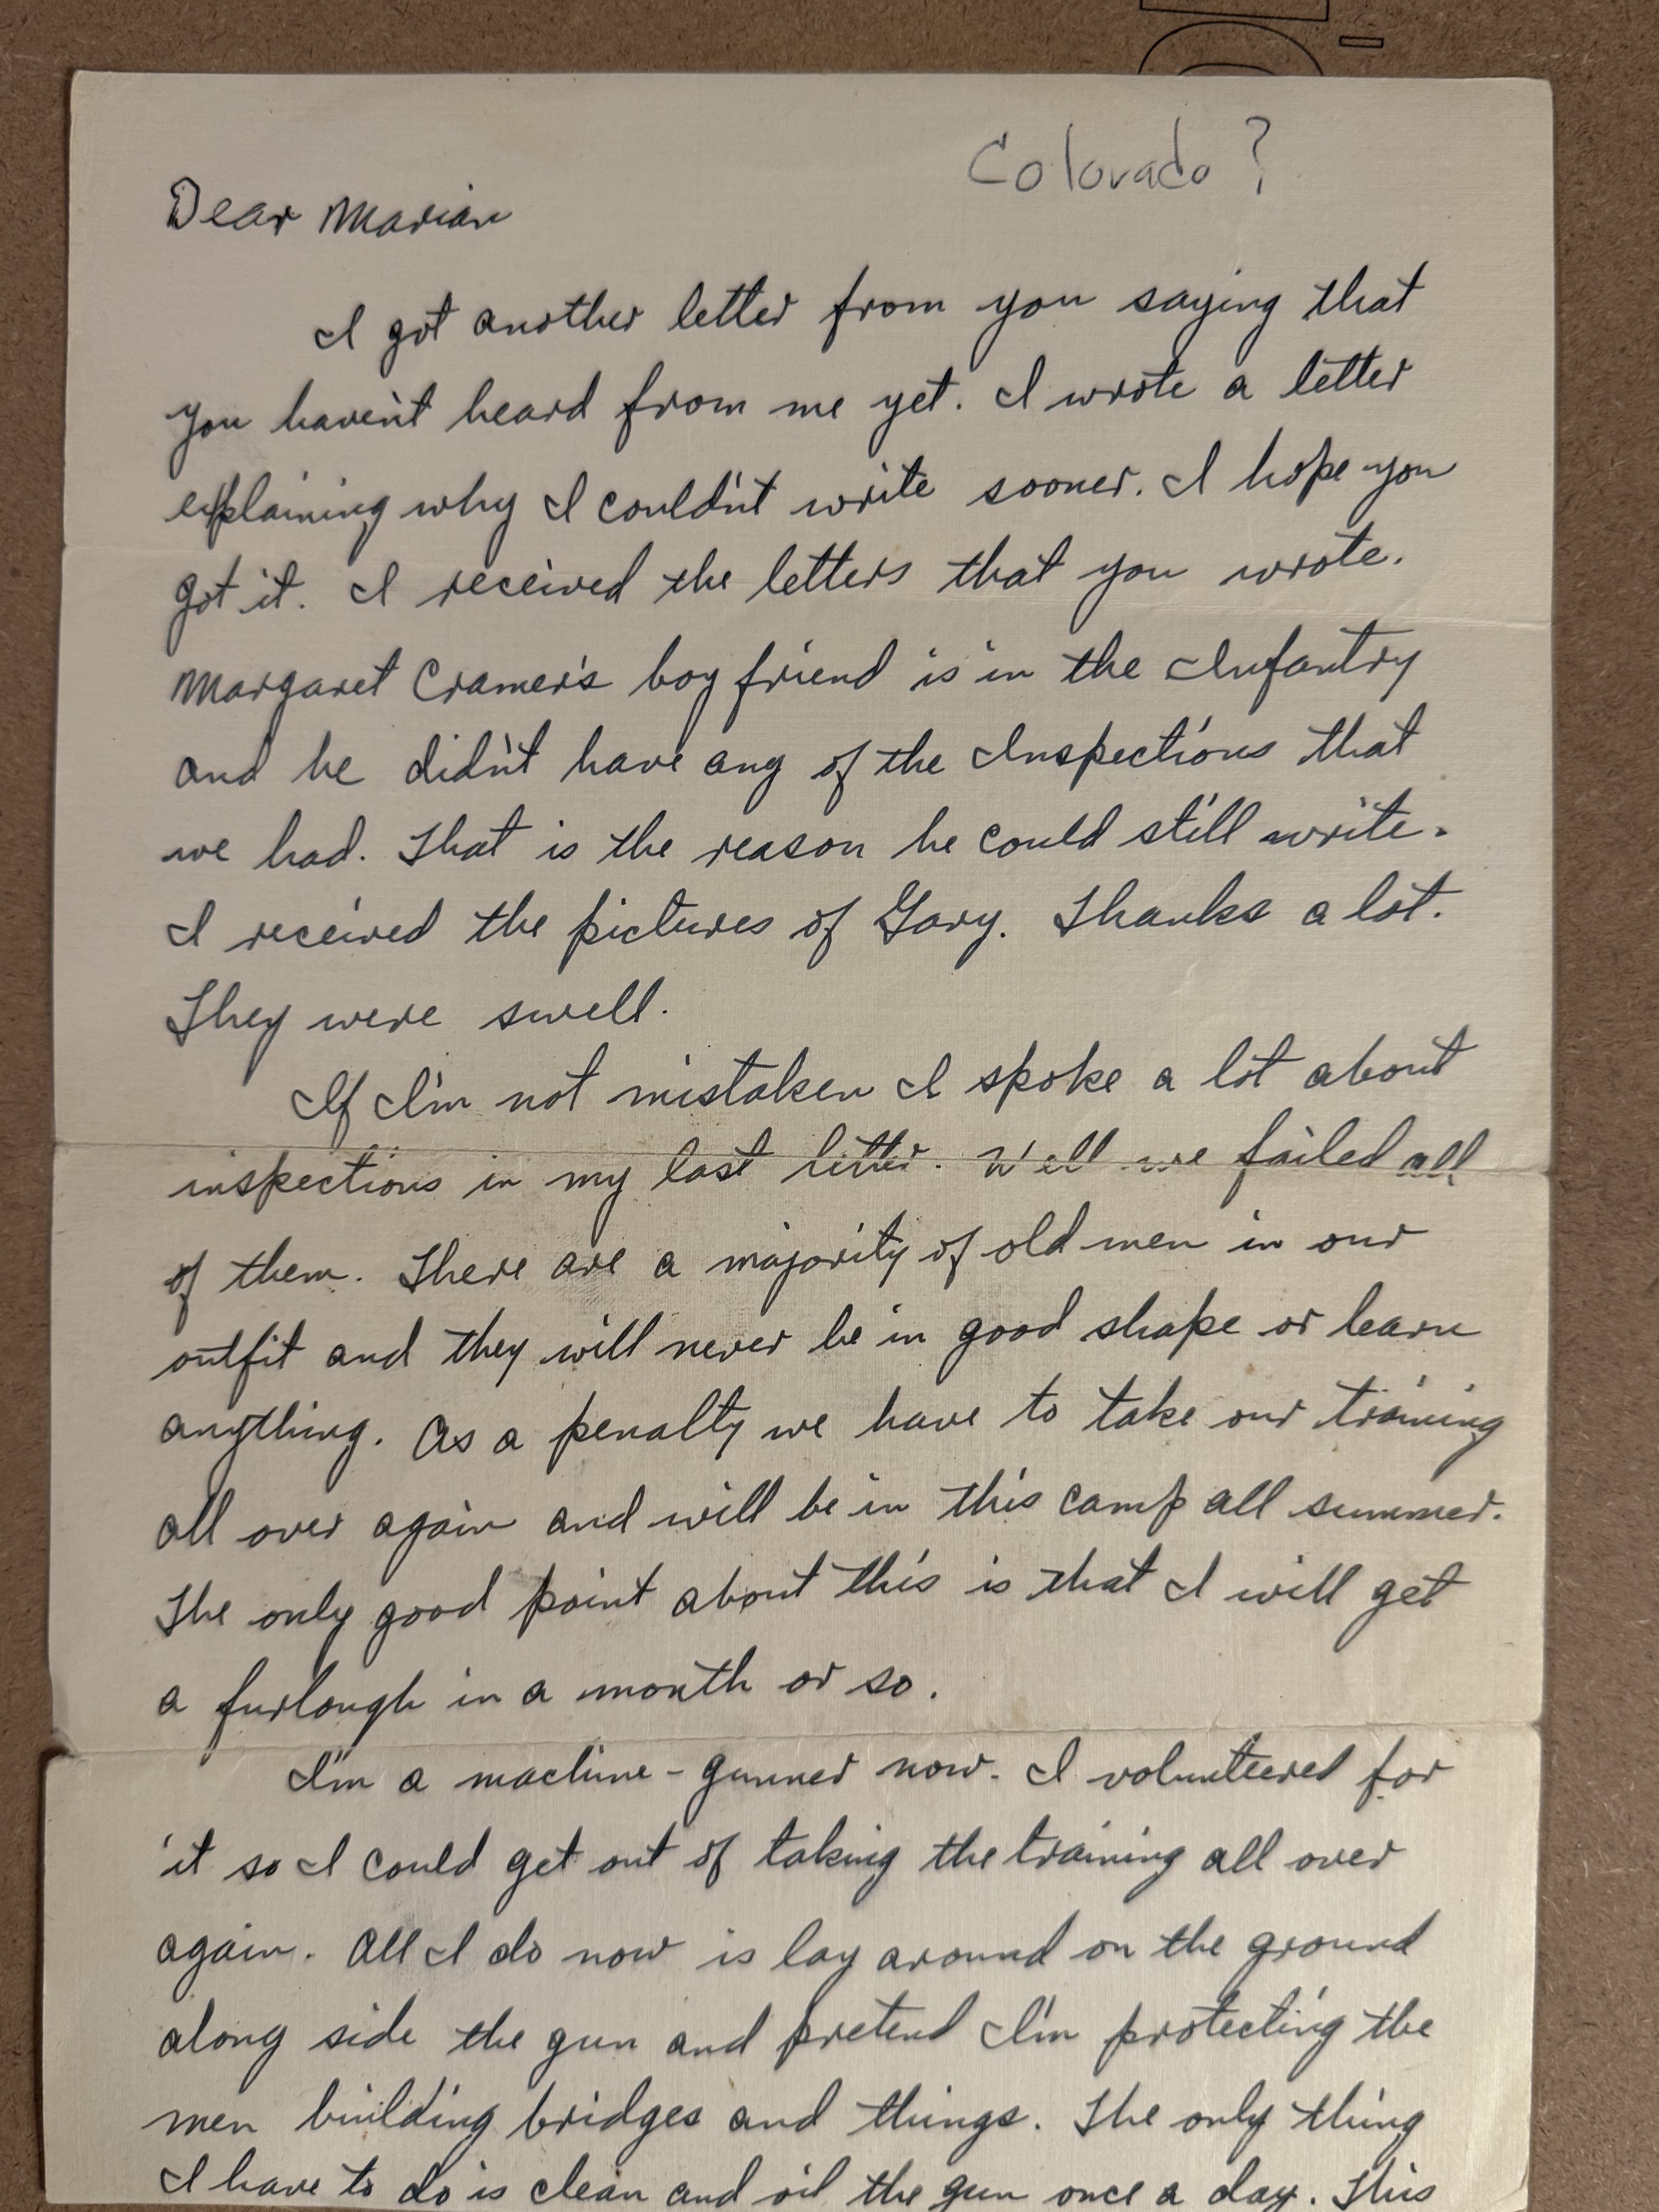 Colorado ?
Dear Marian
I got another letter from you saying that
you haven't heard from me yet. I wrote a letter
explaining why I couldn't write sooner. I hope you
got it. I received the letters that you wrote.
Margaret Cramer's boy friend is in the Infantry
and he didn't have any of the Inspections that
we had. That is the reason he could still write.
I received the pictures of Gary. Thanks a lot.
They were swell.
If I'm not mistaken I spoke a lot about
inspections in my last letter. Well we failed all
of them. There are a majority of old men in our
outfit and they will never be in good shape or learn
anything. As a penalty we have to take our training
all over again and will be in this camp all summer.
The only good point about this is that I will get
a furlough in a month or so.
I'm a machine-gunner now. I volunteered for
it so I could get out of taking the training all over
again. All I do now is lay around on the ground
along side the gun and pretend I'm protecting the
men building bridges and things. The only thing
I have to do is clean and oil the gun once a day. This